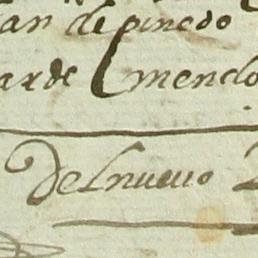 an de pinedo
arde mendo
Del nuevo